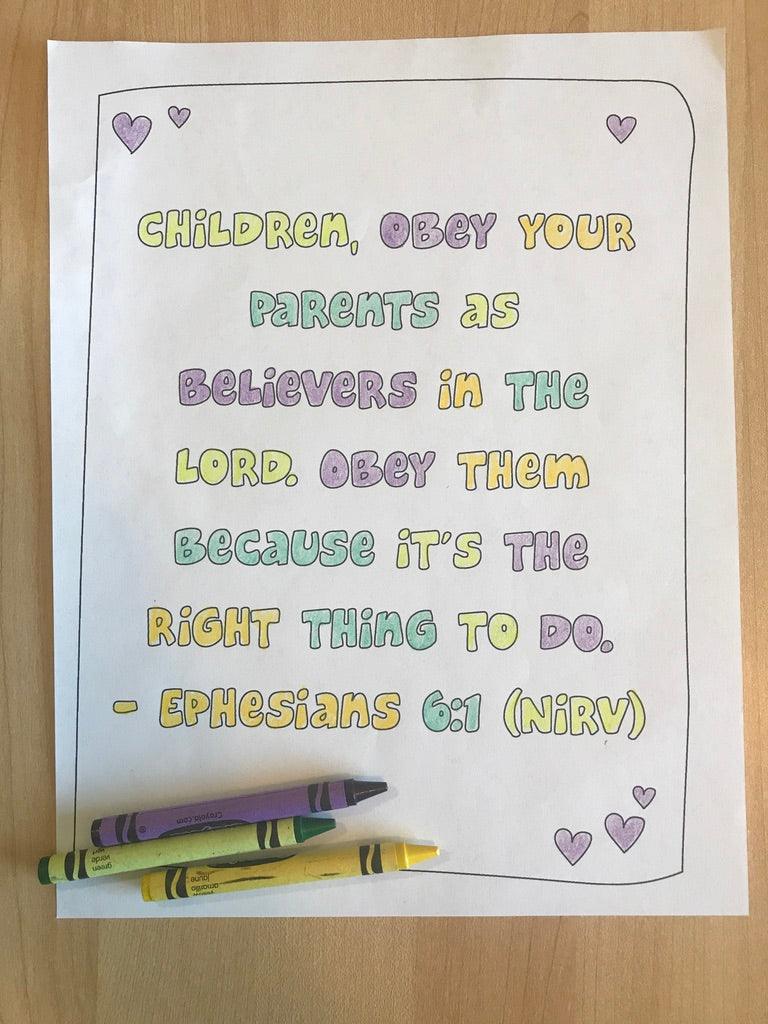 CHiLDRen, OBEY YOUR
PaRenTS as
BeLieveRS in THe
LORD. OBEY THem
Because iT'S THe
RiGHT THinG TO DO.
- EPHesians 6:1 (NiRV)
Crayola.com
green
verde
vert
yellow
amarillo
jaune